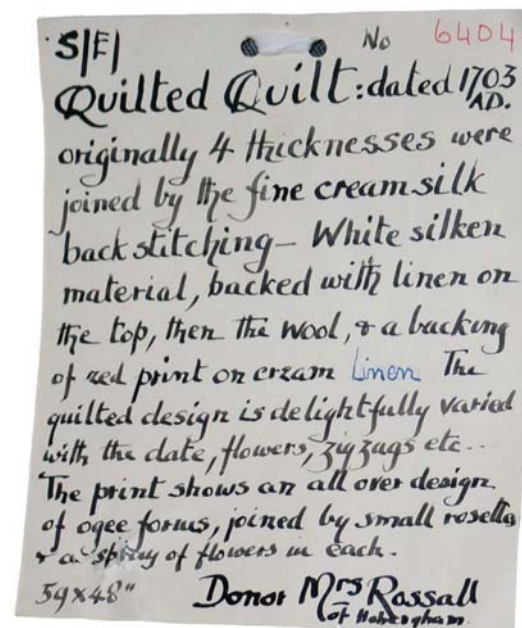 S/E/ No 6404
Quilted Quilt: dated 1703 AD.
originally 4 thicknesses were
joined by the fine cream silk
back stitching - White silken
material, backed with linen on
the top, then the wool, & a backing
of red print on cream Linen The
quilted design is delightfully varied
with the date, flowers, zig zags etc..
The print shows an all over design
of ogee forms, joined by small rosettes
& a spray of flowers in each.
59 x 48" Donor Mrs Rossall
of